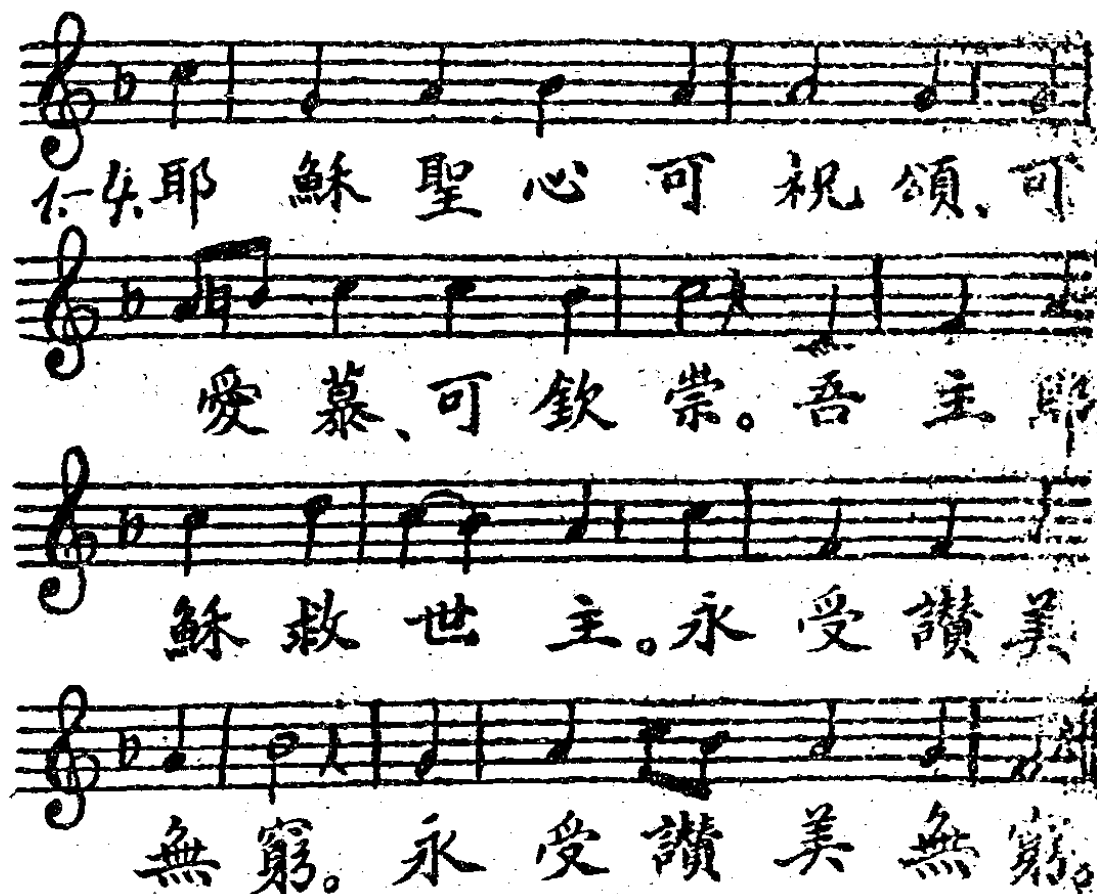 1.-4.耶穌聖心可祝頌、可
愛慕、可欽崇。吾主耶
穌救世主。永受讚美
無窮。永受讚美無窮。